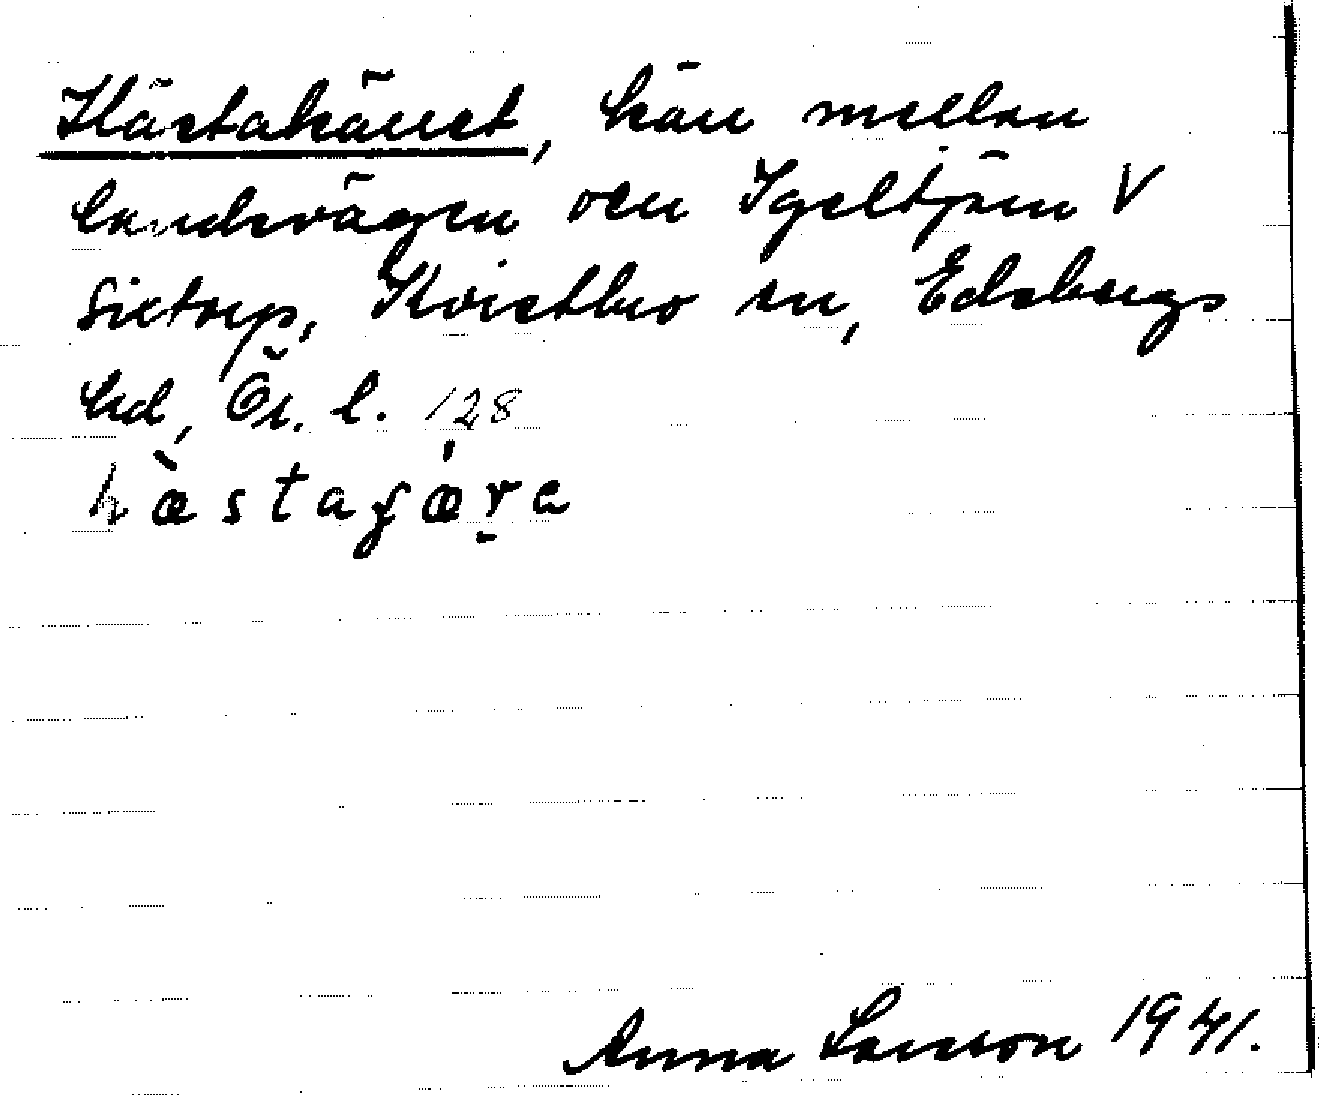 Hästakärret, kärr mellan
landsvägen och Igeltjärn V
Sirtorp, Kvistbro sn, Edsbergs
hd, Ör. l. 128
hæstaɟæra
Anna Larsson 1941.